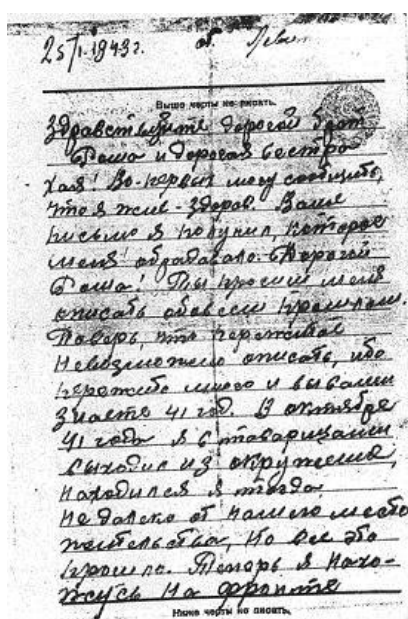 25/I-1943г. от Лёвы
Выше черты не писать.
Здравствуйте дорогой брат
Роша и дорогая сестра
Хая! Во-первых могу сообщить,
что я жив-здоров. Ваше
письмо я получил, которое
меня обрадовало. Дорогой
Роша! Ты просишь меня
описать обо всем прошлом.
Поверь, что пережитое
невозможно описать, ибо
пережито много и вы сами
знаете 41 год. В октябре
41 года я с товарищами
выходил из окружения,
находился я тогда
не далеко от нашего место
жительства, но все это
прошло. Теперь я нахо-
жусь на фронте
Ниже черты не писать.